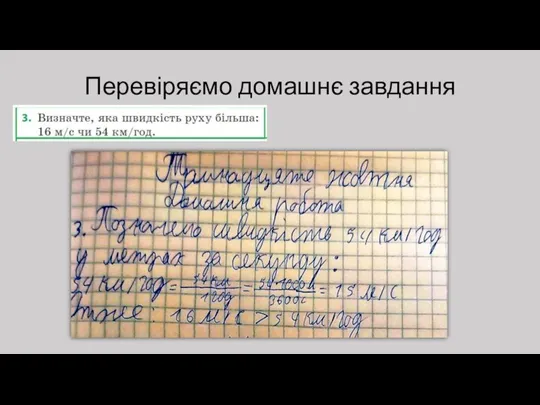 Перевіряємо домашнє завдання
3. Визначте, яка швидкість руху більша:
16 м/с чи 54 км/год.
Тринадцяте жовтня
Домашня робота
3. Позначемо швидкість 54 км/год
у метрах за секунду:
54 км/год = 54 км / 1 год = 54·1000 м / 3600 с = 15 м/с
Отже: 16 м/с > 54 км/год